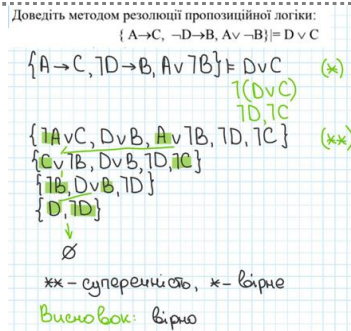 Доведіть методом резолюції пропозиційної логіки:
{ A→C, ¬D→B, A∨ ¬B}|= D ∨ C
{A→C, ⅂D→B, A∨⅂B}⊧ D∨C (*)
⅂(D∨C)
⅂D, ⅂C
{⅂A∨C, D∨B, A∨⅂B, ⅂D, ⅂C} (**)
{C∨⅂B, D∨B, ⅂D, ⅂C}
{⅂B, D∨B, ⅂D}
{D, ⅂D}
∅
** - суперечність, * - вірне
Висновок: вірно